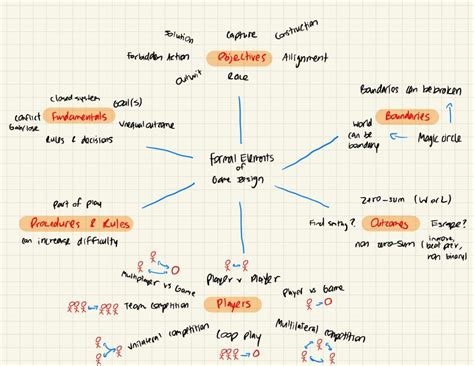 Solution
Capture
Construction
Forbidden Action
Objectives
Allignment
Outwit
Race
Closed system
Goal(s)
Conflict
Fundamentals
Unequal outcome
Rules & decisions
Boundaries can be broken
Boundaries
World
can be
boundary
Magic circle
Formal Elements
of
Game Design
Part of play
Procedures & Rules
can increase difficulty
Zero-sum (W or L)
Outcomes
Escape?
non zero-sum (improve,
non binary)
Multiplayer vs Game
Player v Player
Player vs Game
Team Competition
Players
Unilateral competition
Coop play
Multilateral competition